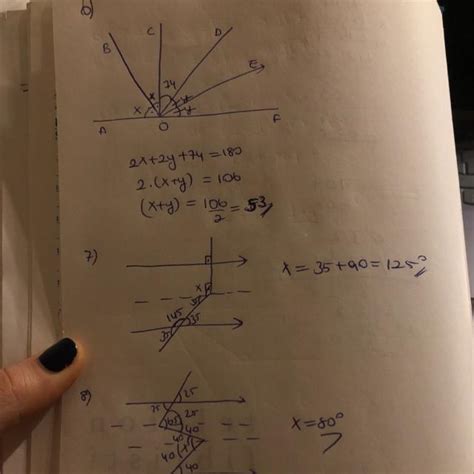 6)
B C D E
x x 34 y y
A O F
2x+2y+74=180
2.(x+y) = 106
(x+y) = 106/2 = 53
7)
x
35
145 35
35
x = 35+90 = 125°
8)
25
25 25
40
40
40
40
x=80°